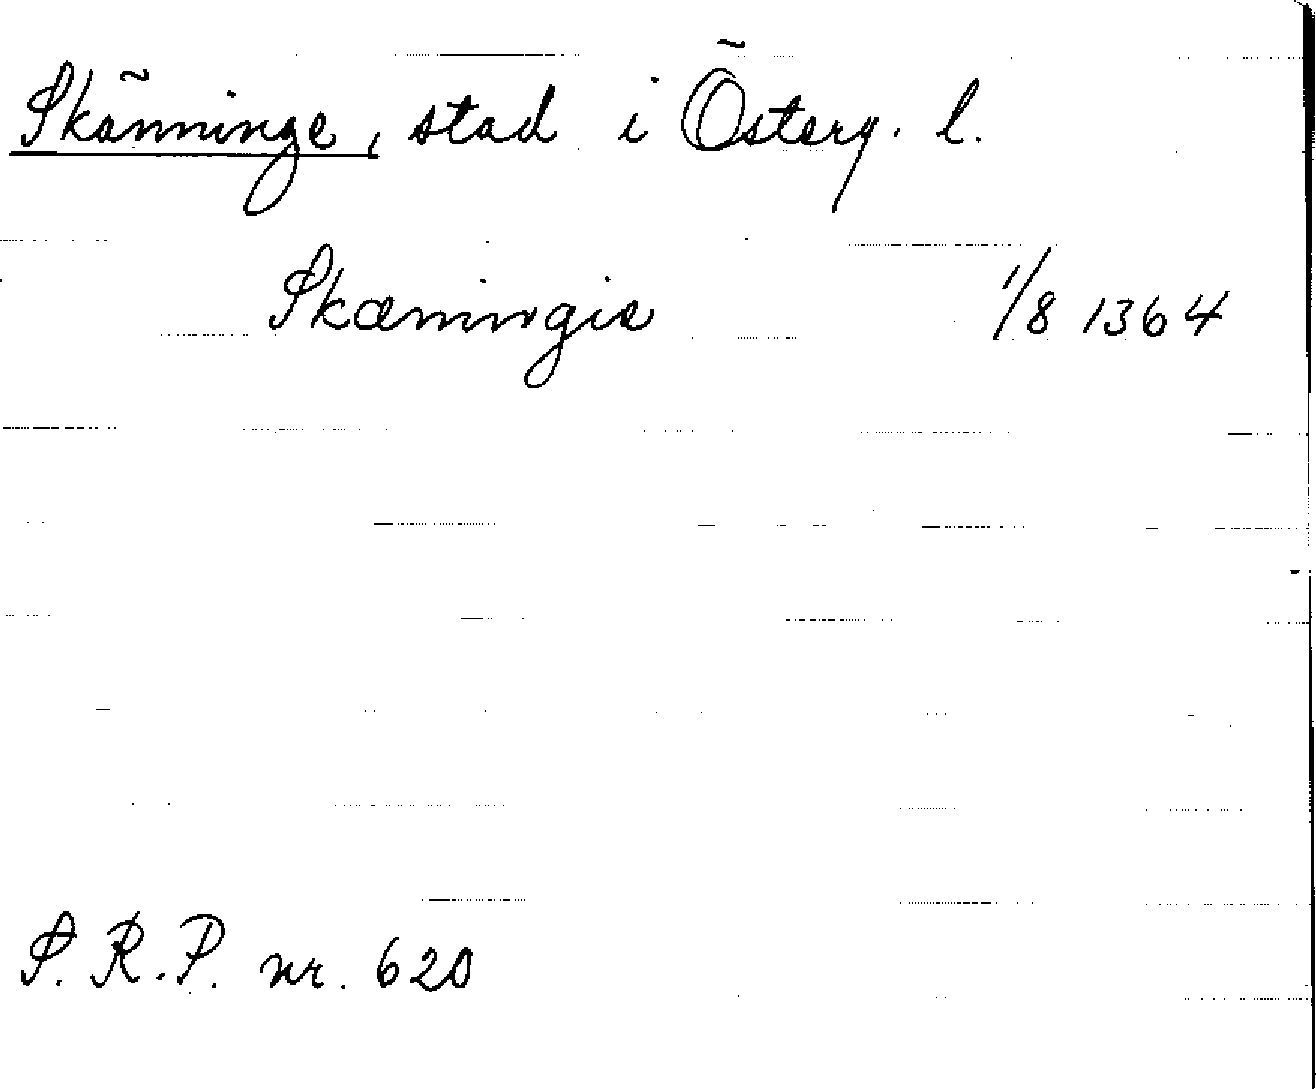 Skänninge, stad i Österg. l.
Skæningie 1/8 1364
S. R. P. nr. 620